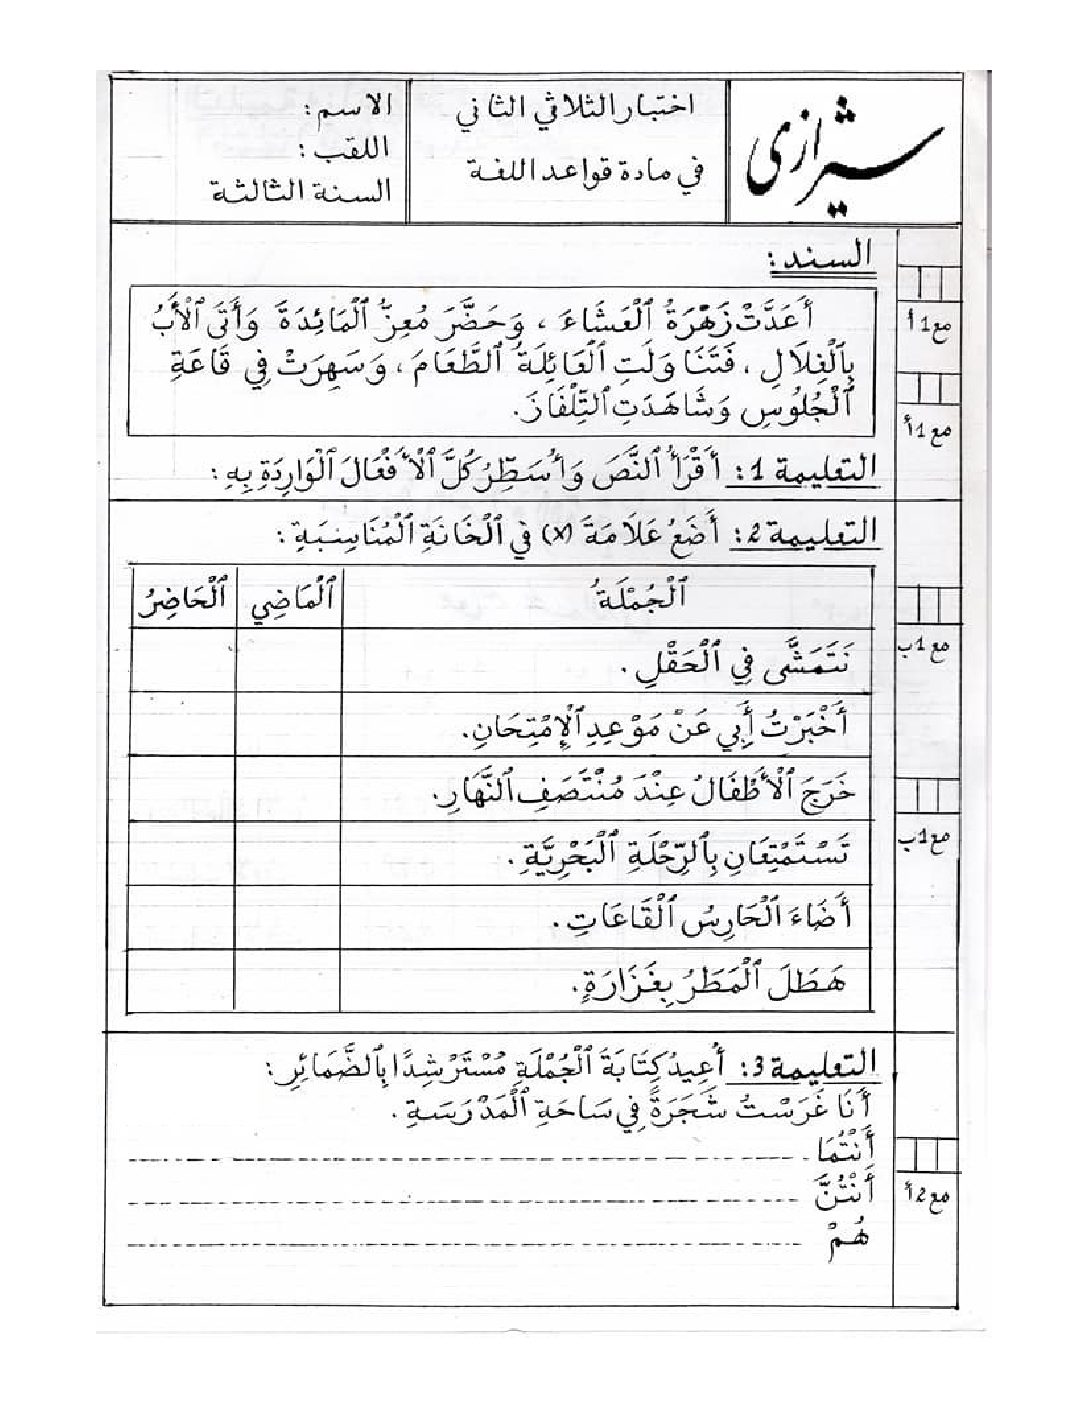 شيرازي
اختبار الثلاثي الثاني
في مادة قواعد اللغة
الاسم:
اللقب:
السنة الثالثة
السند:
أَعَدَّتْ زَهْرَةُ ٱلْعَشَاءَ، وَحَضَّرَ مُعِزُّ ٱلْمَائِدَةَ وَأَتَى ٱلْأَبُ
بِٱلْغِلَالِ، فَتَنَاوَلَتِ ٱلْعَائِلَةُ ٱلطَّعَامَ، وَسَهِرَتْ فِي قَاعَةِ
ٱلْجُلُوسِ وَشَاهَدَتِ ٱلتِّلْفَازَ.
مع1أ
مع1أ
التعليمة 1: أَقْرَأُ ٱلنَّصَ وَأُسَطِّرُ كُلَّ ٱلْأَفْعَالَ ٱلْوَارِدَةِ بِهِ:
التعليمة 2: أَضَعُ عَلَامَةَ (x) فِي ٱلْخَانَةِ ٱلْمُنَاسِبَةِ:
ٱلْجُمْلَةُ ٱلْمَاضِي ٱلْحَاضِرُ
نَتَمَشَّى فِي ٱلْحَقْلِ.
مع1ب
أَخْبَرْتُ أَبِي عَنْ مَوْعِدِ ٱلْإِمْتِحَانِ.
خَرَجَ ٱلْأَطْفَالُ عِنْدَ مُنْتَصَفِ ٱلنَّهَارِ.
تَسْتَمْتِعَانِ بِٱلرِّحْلَةِ ٱلْبَحْرِيَّةِ.
مع1ب
أَضَاءَ ٱلْحَارِسُ ٱلْقَاعَاتِ.
هَطَلَ ٱلْمَطَرُ بِغَزَارَةٍ.
التعليمة 3: أُعِيدُ كِتَابَةَ ٱلْجُمْلَةِ مُسْتَرْشِدًا بِٱلضَّمَائِرِ:
أَنَا غَرَسْتُ شَجَرَةً فِي سَاحَةِ ٱلْمَدْرَسَةِ.
أَنْتُمَا
أَنْتُنَّ
مع2أ
هُمْ